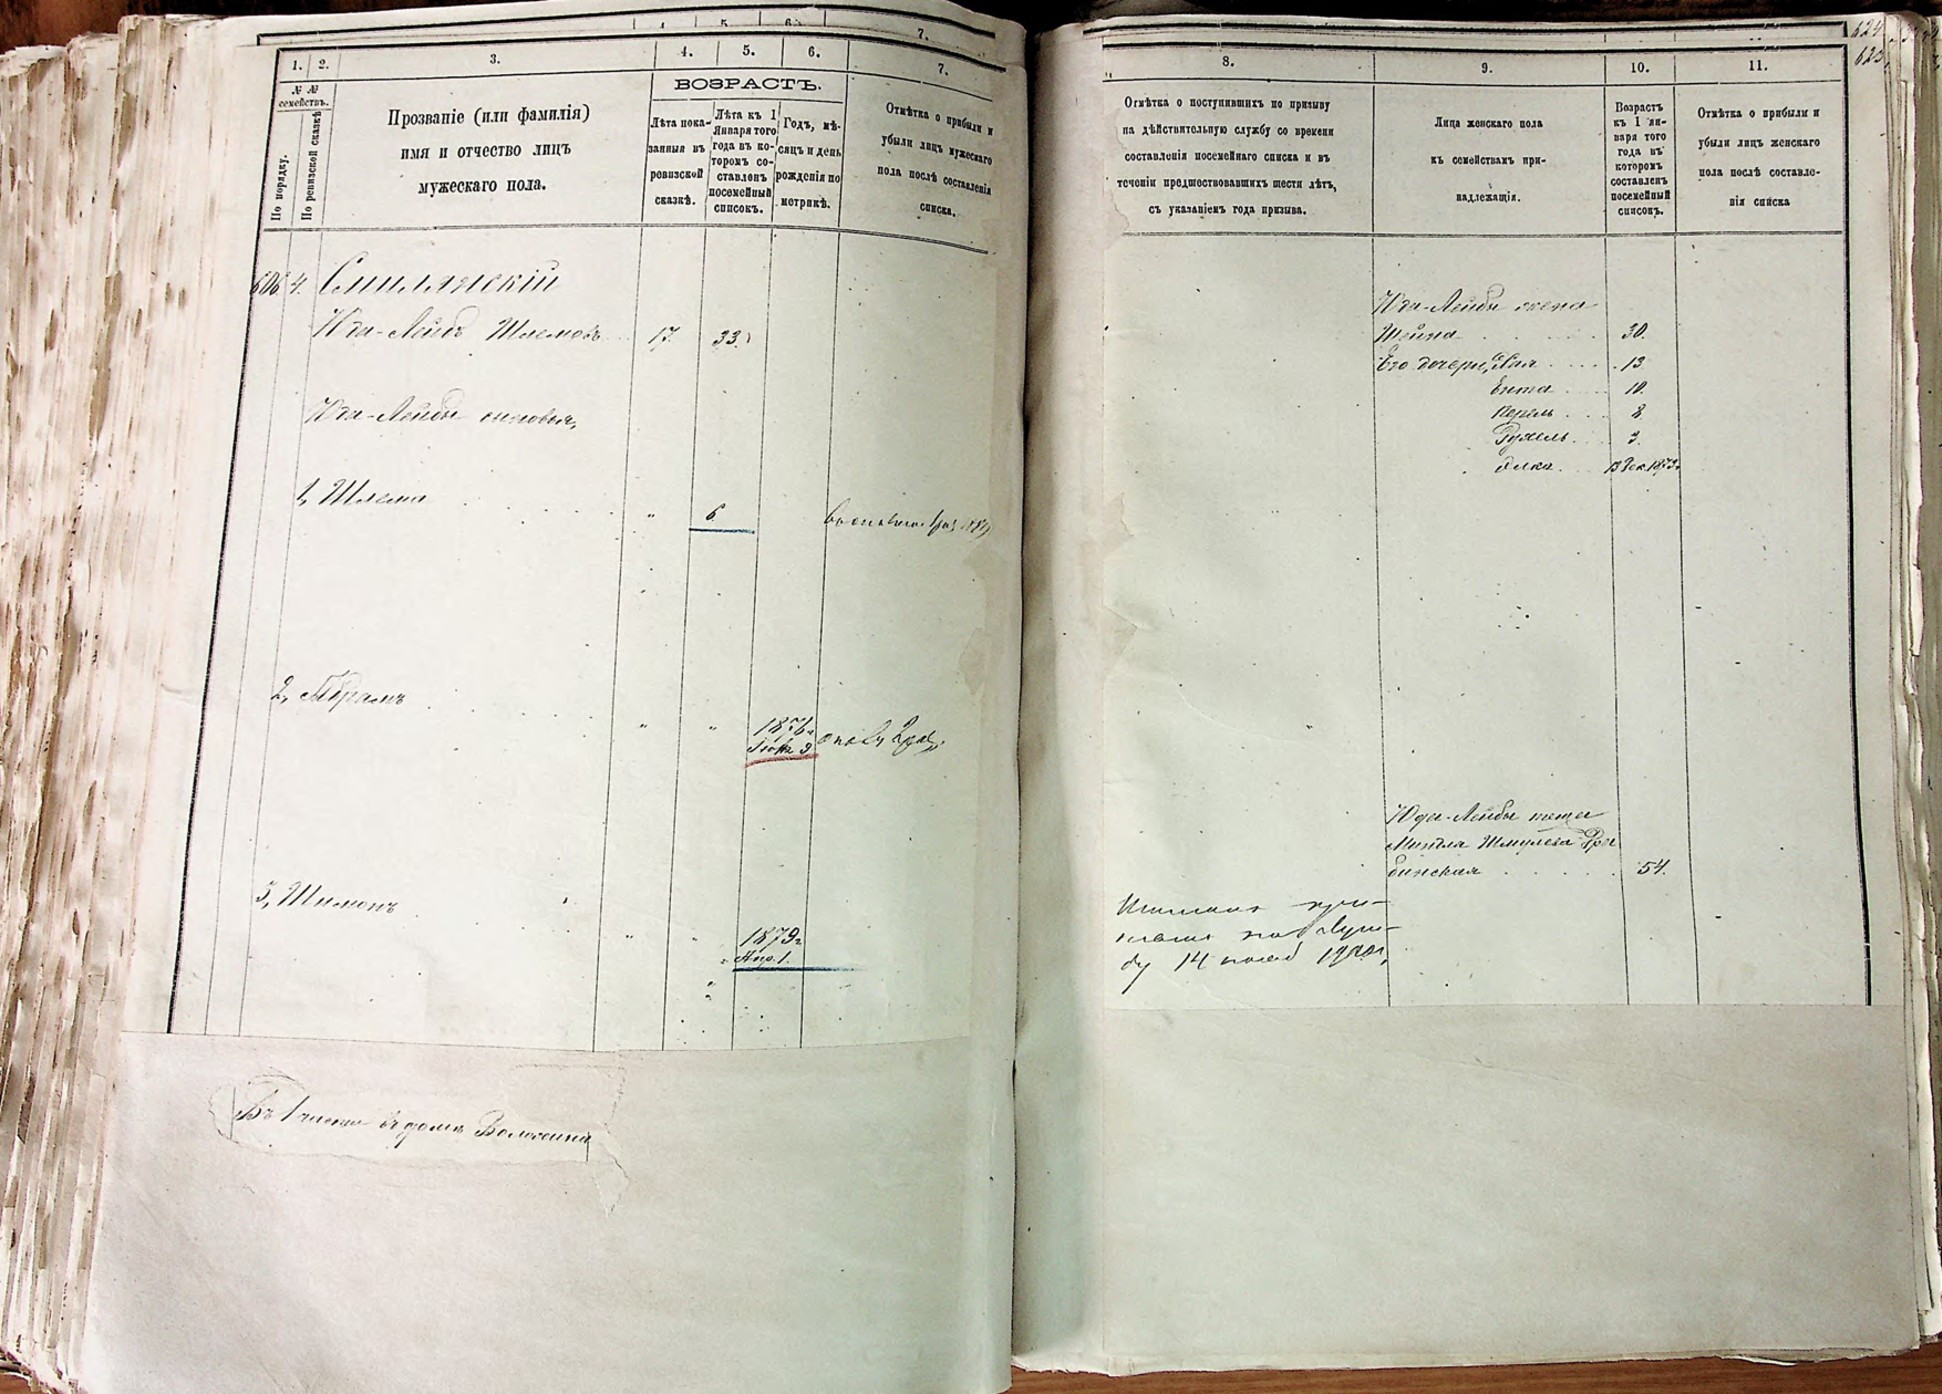 4. 5. 6. 7.
1. 2. 3. 4. 5. 6. 7.
№ №
семействъ.
По порядку.
По ревизской сказкѣ
Прозваніе (или фамилія)
имя и отчество лицъ
мужескаго пола.
ВОЗРАСТЪ.
Лѣта пока-
занныя въ
ревизской
сказкѣ.
Лѣта къ 1
Января того
года въ ко-
торомъ со-
ставленъ
посемейный
списокъ.
Годъ, мѣ-
сяцъ и день
рожденія по
метрикѣ.
Отмѣтка о прибыли и
убыли лицъ мужескаго
пола послѣ составленія
списка.
606. 4. Смилянскій
Юда-Лейбъ Шлемовъ 17. 33.
Юда-Лейбы сыновья,
1, Шлема " 6.
2, Абрамъ " " 1876г.
3, Шимонъ " " 1879г.
Апр. 1.
Въ 1 части въ домѣ
624
623
8. 9. 10. 11.
Отмѣтка о поступившихъ по призыву
на дѣйствительную службу со времени
составленія посемейнаго списка и въ
теченіи предшествовавшихъ шести лѣтъ,
съ указаніемъ года призыва.
Лица женскаго пола
къ семействамъ при-
надлежащія.
Возрастъ
къ 1 ян-
варя того
года въ
которомъ
составленъ
посемейный
списокъ.
Отмѣтка о прибыли и
убыли лицъ женскаго
пола послѣ составле-
нія списка
Юда-Лейбы жена
Шейна 30.
Его дочери, Хая 13
Ента 10.
Перель 8
Рухель 3.
Элка 13 Дек. 1873г.
Юда-Лейбы теща
Миндля Шмулева Гра
бинская 54.
Шимонъ при-
нятъ на служ-
бу 14 1900г,